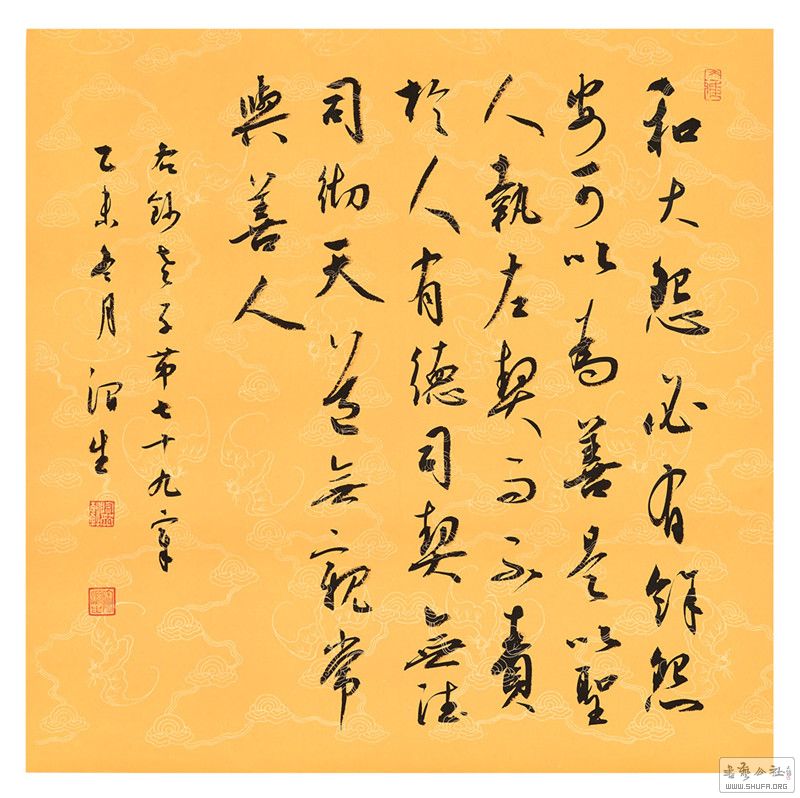 和大怨必有餘怨
安可以為善是以聖
人執左契而不責
於人有德司契無德
司徹天道無親常
與善人
右鈔老子第七十九章
乙未冬月 生
書藝公社
WWW.SHUFA.ORG